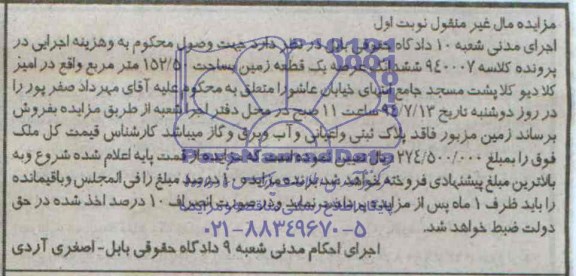 مزایده مال غیر منقول نوبت اول
اجرای مدنی شعبه ۱۰ دادگاه حقوقی بابل در نظر دارد جهت وصول محکوم به وهزینه اجرایی در
پرونده کلاسه ۹٤۰۰۰۷ ششدانگ عرصه یک قطعه زمین بمساحت ۱۵۲/۵ متر مربع واقع در امیز
کلا دیو کلا پشت مسجد جامع انتهای خیابان عاشورا متعلق به محکوم علیه آقای مهرداد صفر پور را
در روز دوشنبه تاریخ ۹٤/۷/۱۳ ساعت ۱۱ صبح در محل دفتر اجرا شعبه از طریق مزایده بفروش
برساند زمین مزبور فاقد پلاک ثبتی واعیانی و آب وبرق وگاز میباشد کارشناس قیمت کل ملک
فوق را بمبلغ ۲۷٤/۵۰۰/۰۰۰ ریال تعیین نموده است که مزایده از قیمت پایه اعلام شده شروع وبه
بالاترین مبلغ پیشنهادی فروخته خواهد شد برنده مزایده ۱۰ درصد مبلغ را فی المجلس وباقیمانده
را باید ظرف ۱ ماه پس از مزایده پرداخت نماید ودر صورت انصراف ۱۰ درصد اخذ شده در حق
دولت ضبط خواهد شد.
۰۲۱-۸۸۳٤۹۶۷۰-۵
اجرای احکام مدنی شعبه ۹ دادگاه حقوقی بابل- اصغری آردی